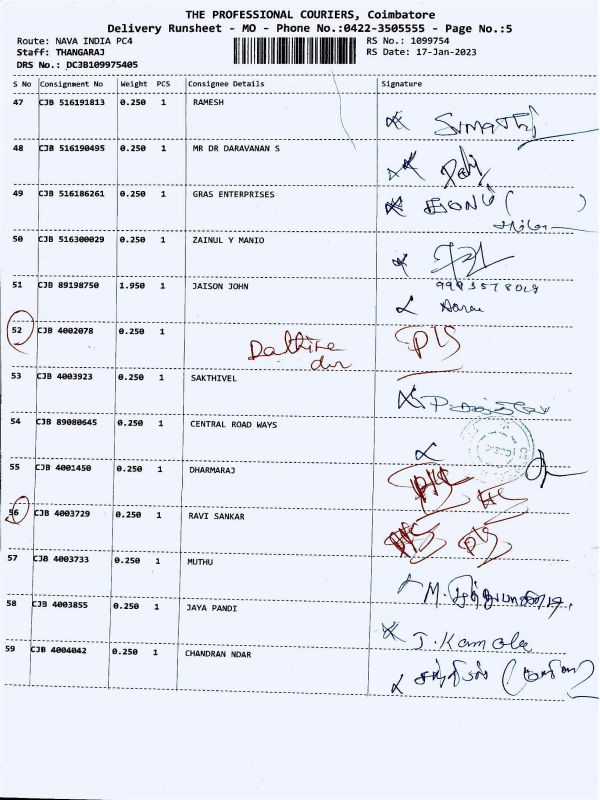 THE PROFESSIONAL COURIERS, Coimbatore
Delivery Runsheet - MO - Phone No.:0422-3505555 - Page No.:5
Route: NAVA INDIA PC4 RS No.: 1099754
Staff: THANGARAJ RS Date: 17-Jan-2023
DRS No.: DC3B109975405
S No Consignment No Weight PCS Consignee Details Signature
47 CJB 516191813 0.250 1 RAMESH
48 CJB 516190495 0.250 1 MR DR DARAVANAN S
49 CJB 516186261 0.250 1 GRAS ENTERPRISES
50 CJB 516300029 0.250 1 ZAINUL Y MANIO
51 CJB 89198750 1.950 1 JAISON JOHN
52 CJB 4002078 0.250 1
53 CJB 4003923 0.250 1 SAKTHIVEL
54 CJB 89080645 0.250 1 CENTRAL ROAD WAYS
55 CJB 4001450 0.250 1 DHARMARAJ
56 CJB 4003729 0.250 1 RAVI SANKAR
57 CJB 4003733 0.250 1 MUTHU
58 CJB 4003855 0.250 1 JAYA PANDI J. Kamala
59 CJB 4004042 0.250 1 CHANDRAN NDAR